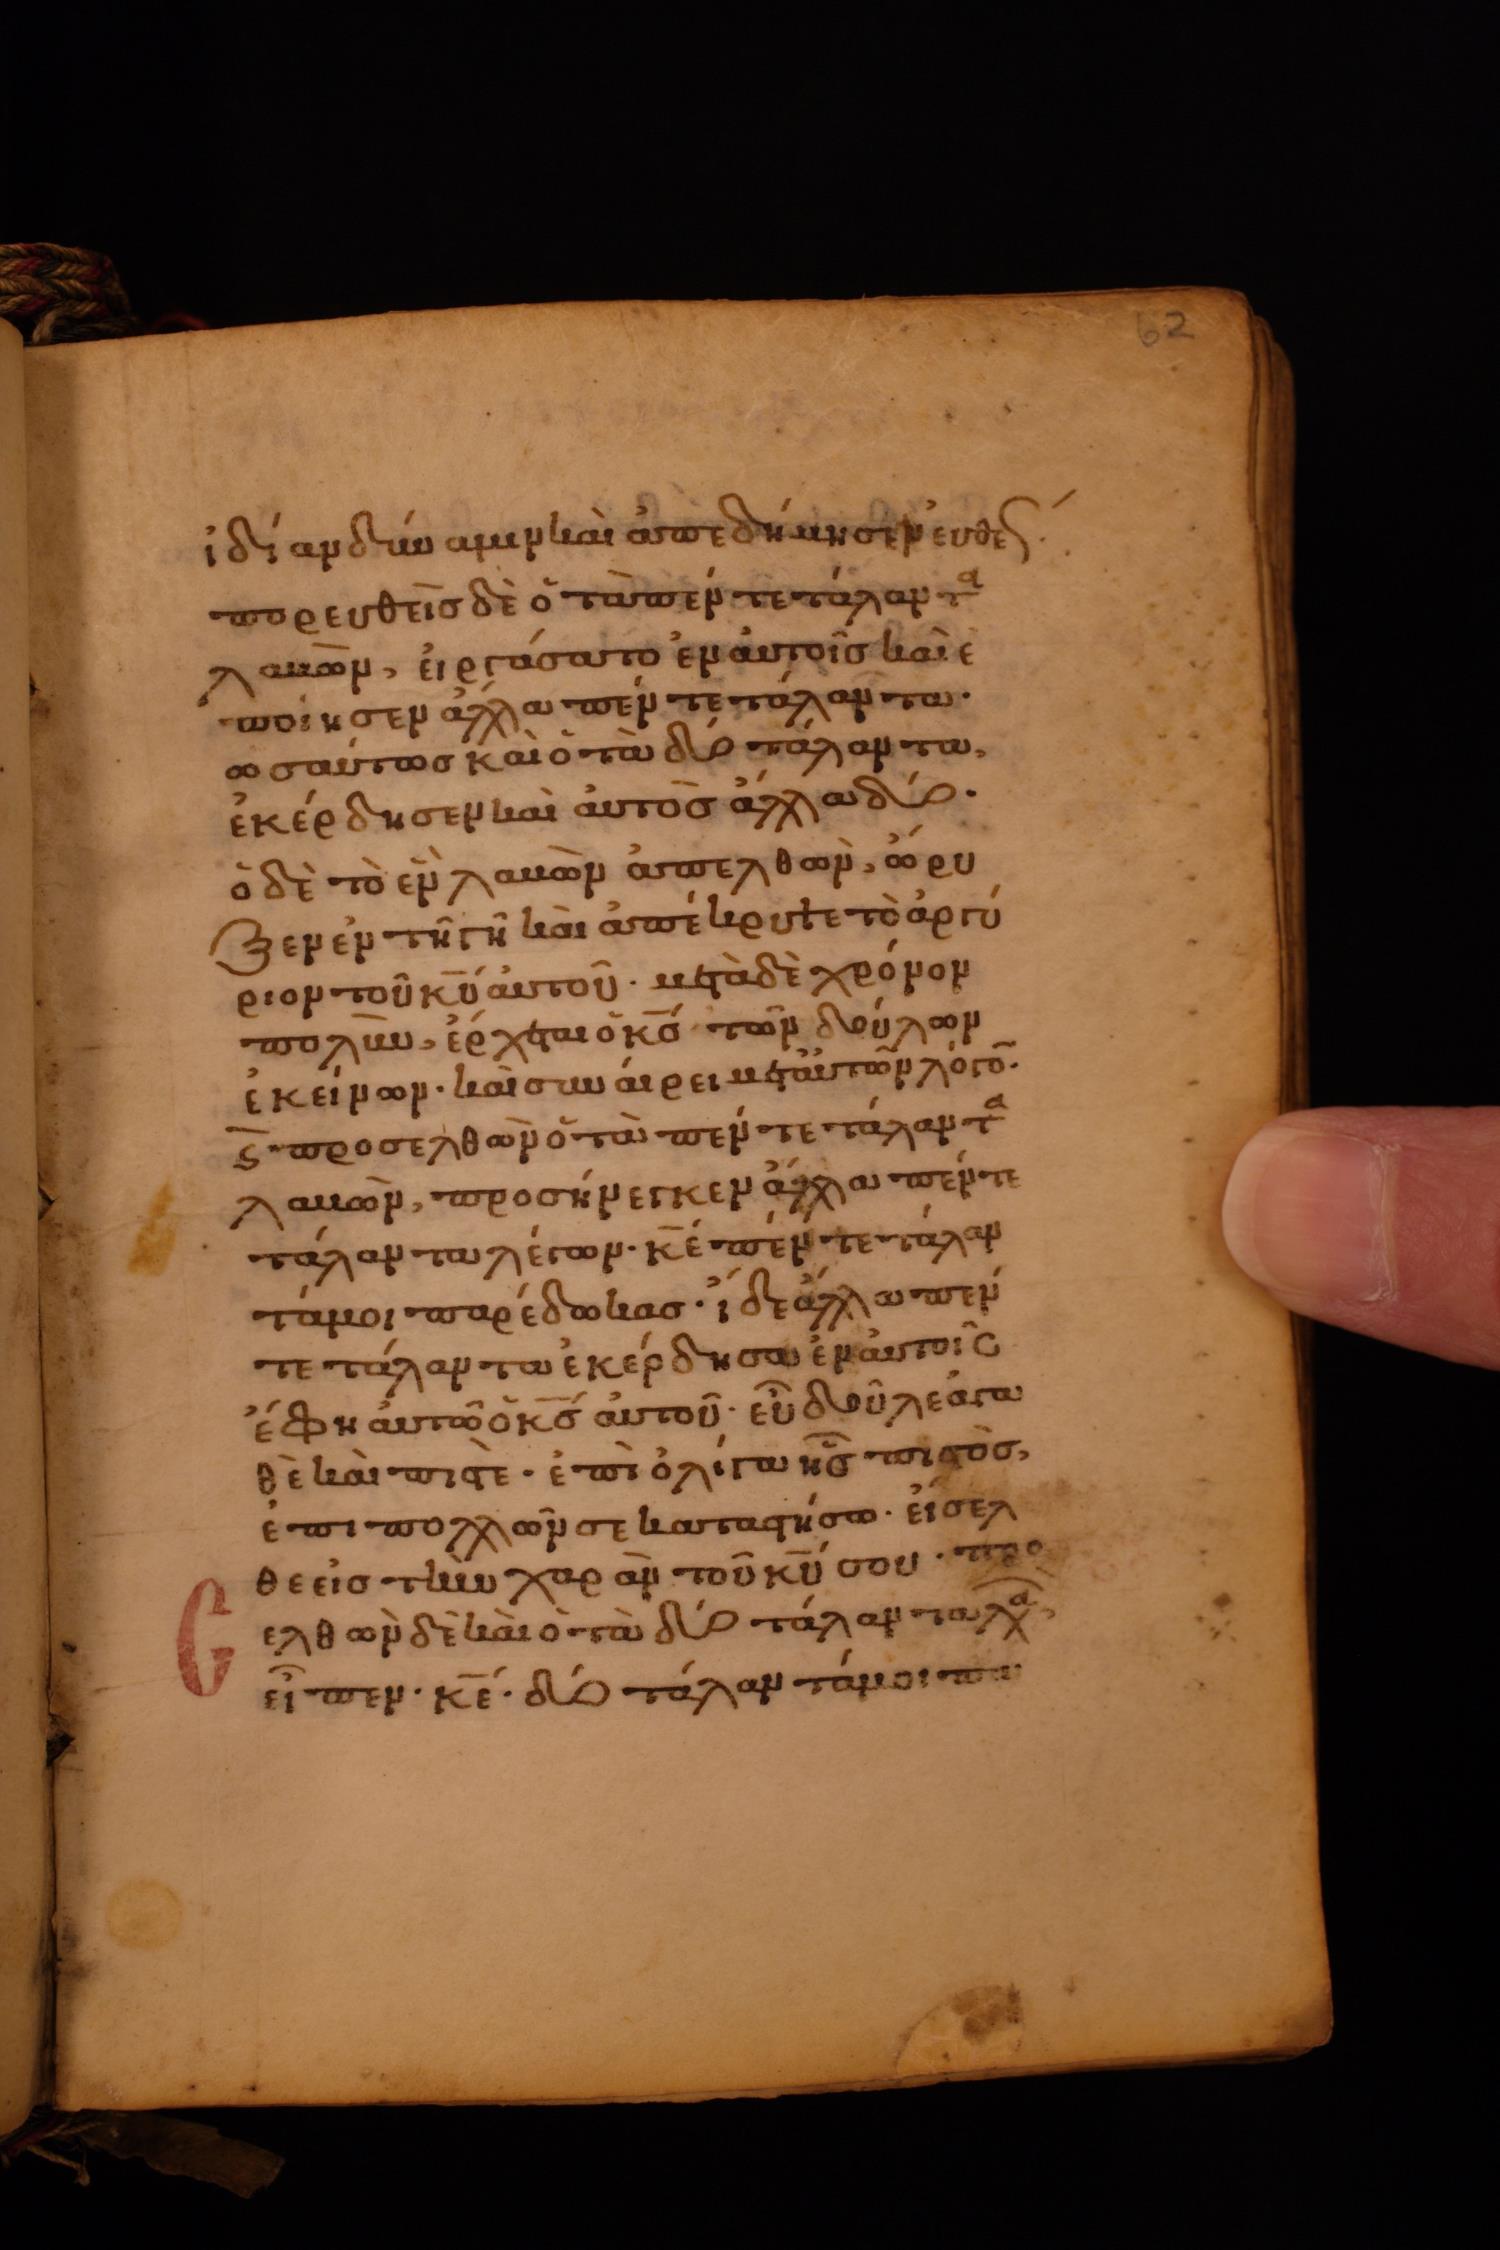 62
ἰδίαν δύναμιν καὶ ἀπεδήμησεν εὐθέ
πορευθεὶς δὲ ὁ τὰ πέντε τάλαντα
λαβὼν, εἰργάσατο ἐν αὐτοῖς καὶ ἐ
ποίησεν ἄλλα πέντε τάλαντα·
ωσαύτως καὶ ὁ τὰ δύο τάλαντα,
ἐκέρδησεν καὶ αὐτὸς ἄλλα δύο·
ὁ δὲ τὸ ἓν λαβὼν ἀπελθὼν, ὤρυ
ξεν ἐν τῆ γῆ καὶ ἀπέκρυψε τὸ ἀργύ
ριον τοῦ κ̅υ̅ αὐτοῦ· μετὰ δὲ χρόνον
πολὺν, ἔρχεται ὁ κ̅ς̅ τῶν δούλων
ἐκείνων· καὶ συναίρει μετ' αὐτῶν λόγο̅·
ϛ προσελθὼν ὁ τὰ πέντε τάλαντα
λαβὼν, προσήνεγκεν ἄλλα πέντε
τάλαντα λέγων· κ̅ε̅ πέντε τάλαν
τά μοι παρέδωκας· ἴδε ἄλλα πέν
τε τάλαντα ἐκέρδησα ἐν αὐτοῖς
ἔφη αὐτῶ ὁ κ̅ς̅ αὐτοῦ· εὖ δοῦλε ἀγα
θὲ καὶ πιστὲ· ἐπὶ ὀλίγα ἦς πιστὸς,
ἐπι πολλῶν σε καταστήσω· εἴσελ
θε εἰς τὴν χαρὰν τοῦ κ̅υ̅ σου· προ
ελθὼν δὲ καὶ ὁ τὰ δύο τάλαντα λα,
εἶπεν· κ̅ε̅· δύο τάλαντά μοι πα